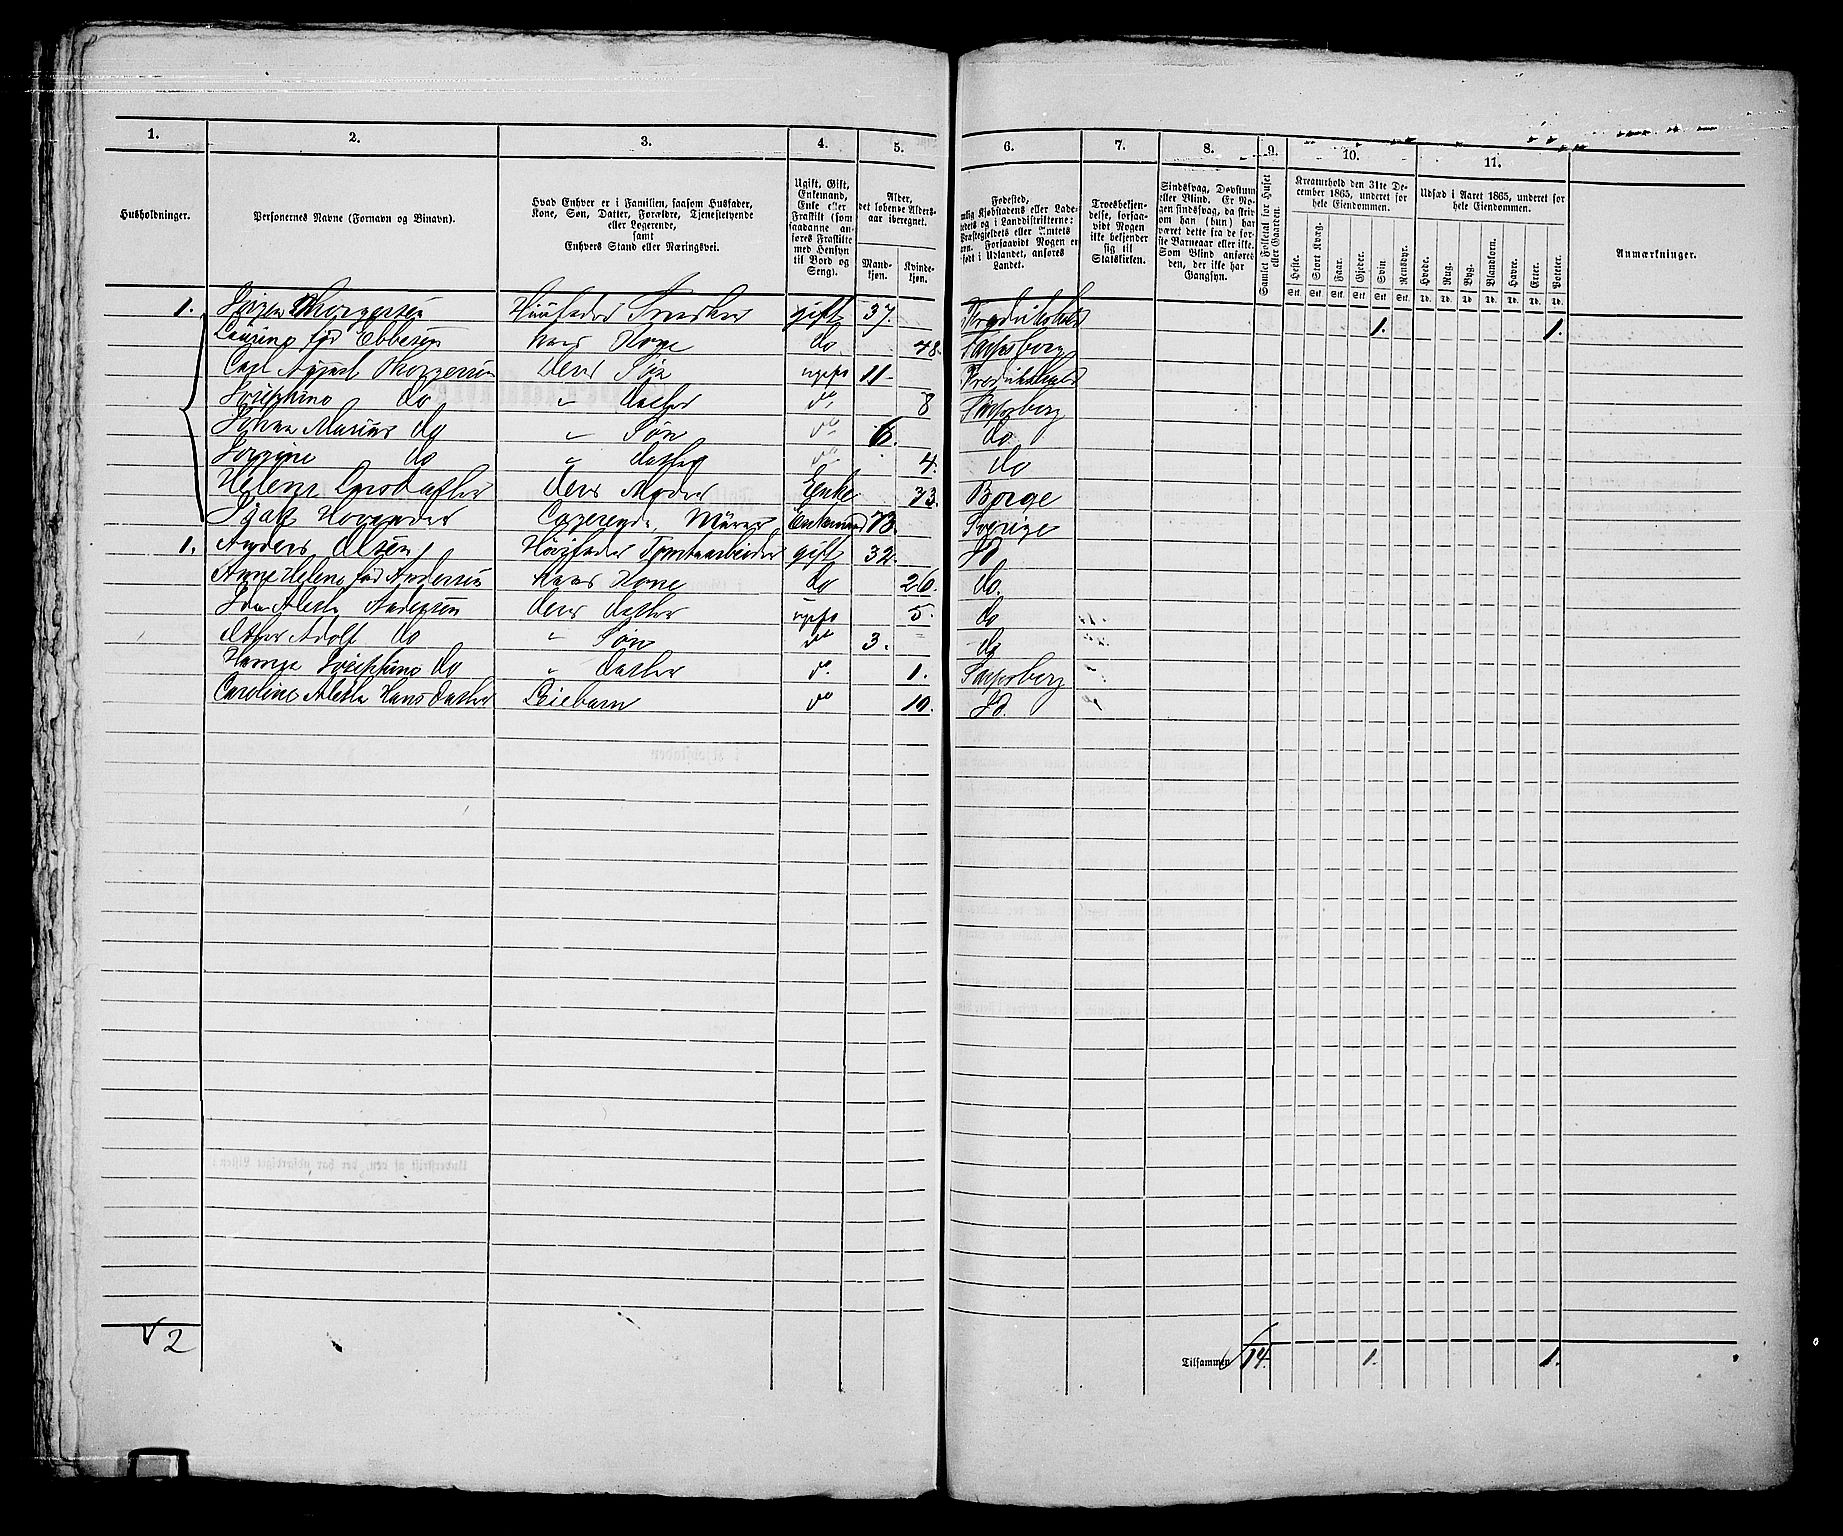 1. 2. 3. 4. 5. 6. 7. 8. 9. 10. 11.
Husholdninger.
Personernes Navne (Fornavn og Binavn).
Hvad Enhver er i Familien, saasom Husfader,
Kone, Søn, Datter, Forældre, Tjenestetyende
eller Logerende,
samt
Enhvers Stand eller Næringsvei.
Ugift, Gift,
Enkemand,
Enke eller
Fraskilt (som
saadanne an-
føres Fraskilte
med Hensyn
til Bord og
Seng).
Alder,
det løbende Alders-
aar iberegnet.
Mand-
kjøn.
Kvinde-
kjøn.
Fødested,
Kjøbstadens eller Lade-
og i Landdistrikterne:
Præstegjeldets eller Amtets
Forsaavidt Nogen er
født i Udlandet, anføres
Landet.
Troesbekjen-
delse, forsaa-
vidt Nogen
ikke bekjender
sig til
Statskirken.
Sindssvag, Døvstum
eller Blind. Er No-
gen sindssvag, da skri-
om han (hun) har
været dette fra de før-
ste Barneaar eller ikke.
Som Blind anføres
den, der ikke har
Gangsyn.
Samlet Folketal for Huset
eller Gaarden.
Kreaturhold den 31te De-
cember 1865, underet for
hele Eiendommen.
Heste. Stort Kvæg. Faar. Gjeder. Svin. Rensdyr.
Stk. Stk. Stk. Stk. Stk. Stk.
Udsæd i Aaret 1865, underet for
hele Eiendommen.
Hvede. Rug. Byg. Blandkorn. Havre. Erter. Poteter.
Td. Td. Td. Td. Td. Td. Td.
Anmærkninger.
1. Jørgen Thorgersen Huusfader Snedker gift 37. Fredrikshald 1. 1.
Laurine fød Ebbesen hans Kone do 48. Sarpsborg
Carl August Thorgersen deres Søn ugift 11 Fredrikshald
Josephine do " datter do 8 Sarpsborg
Johan Marius do " Søn do 6. do
Jorgine do " datter do 4. do
Helene Larsdatter deres Moder Enke 73. Borge
Isak Logerende, Murer Enkemand 73. Sverige
1. Anders Olsen Huusfader Tomtearbeider gift 32. Id
Anne Helene fød Andersen hans Kone do 26. do.
Ida Alette Andersen deres datter ugift 5. do
Adolf do " Søn do 3. do
Josephine do " datter do 1. Sarpsborg
Caroline Alette Hansdatter Leiebarn do 10. Id.
√ 2
Tilsammen 14. 1. 1.